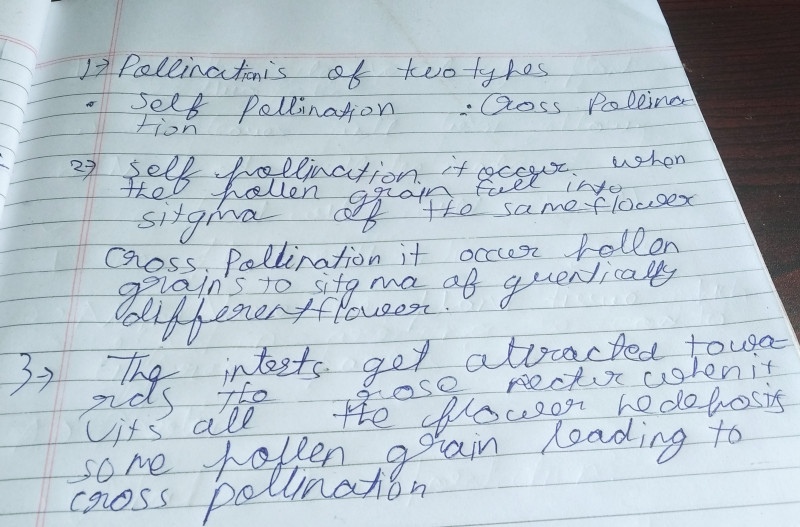 1) Pollination is of two types
• Self Pollination • Cross Pollina
tion
2) Self pollination it occur when
the pollen grain fall into
sitgma of the same flower
Cross Pollination it occur pollen
grains to sitgma of guentically
different flower.
3) The intests get attracted towa
rds the rose nectur when it
vits all the flower he deposits
some pollen grain leading to
cross pollination